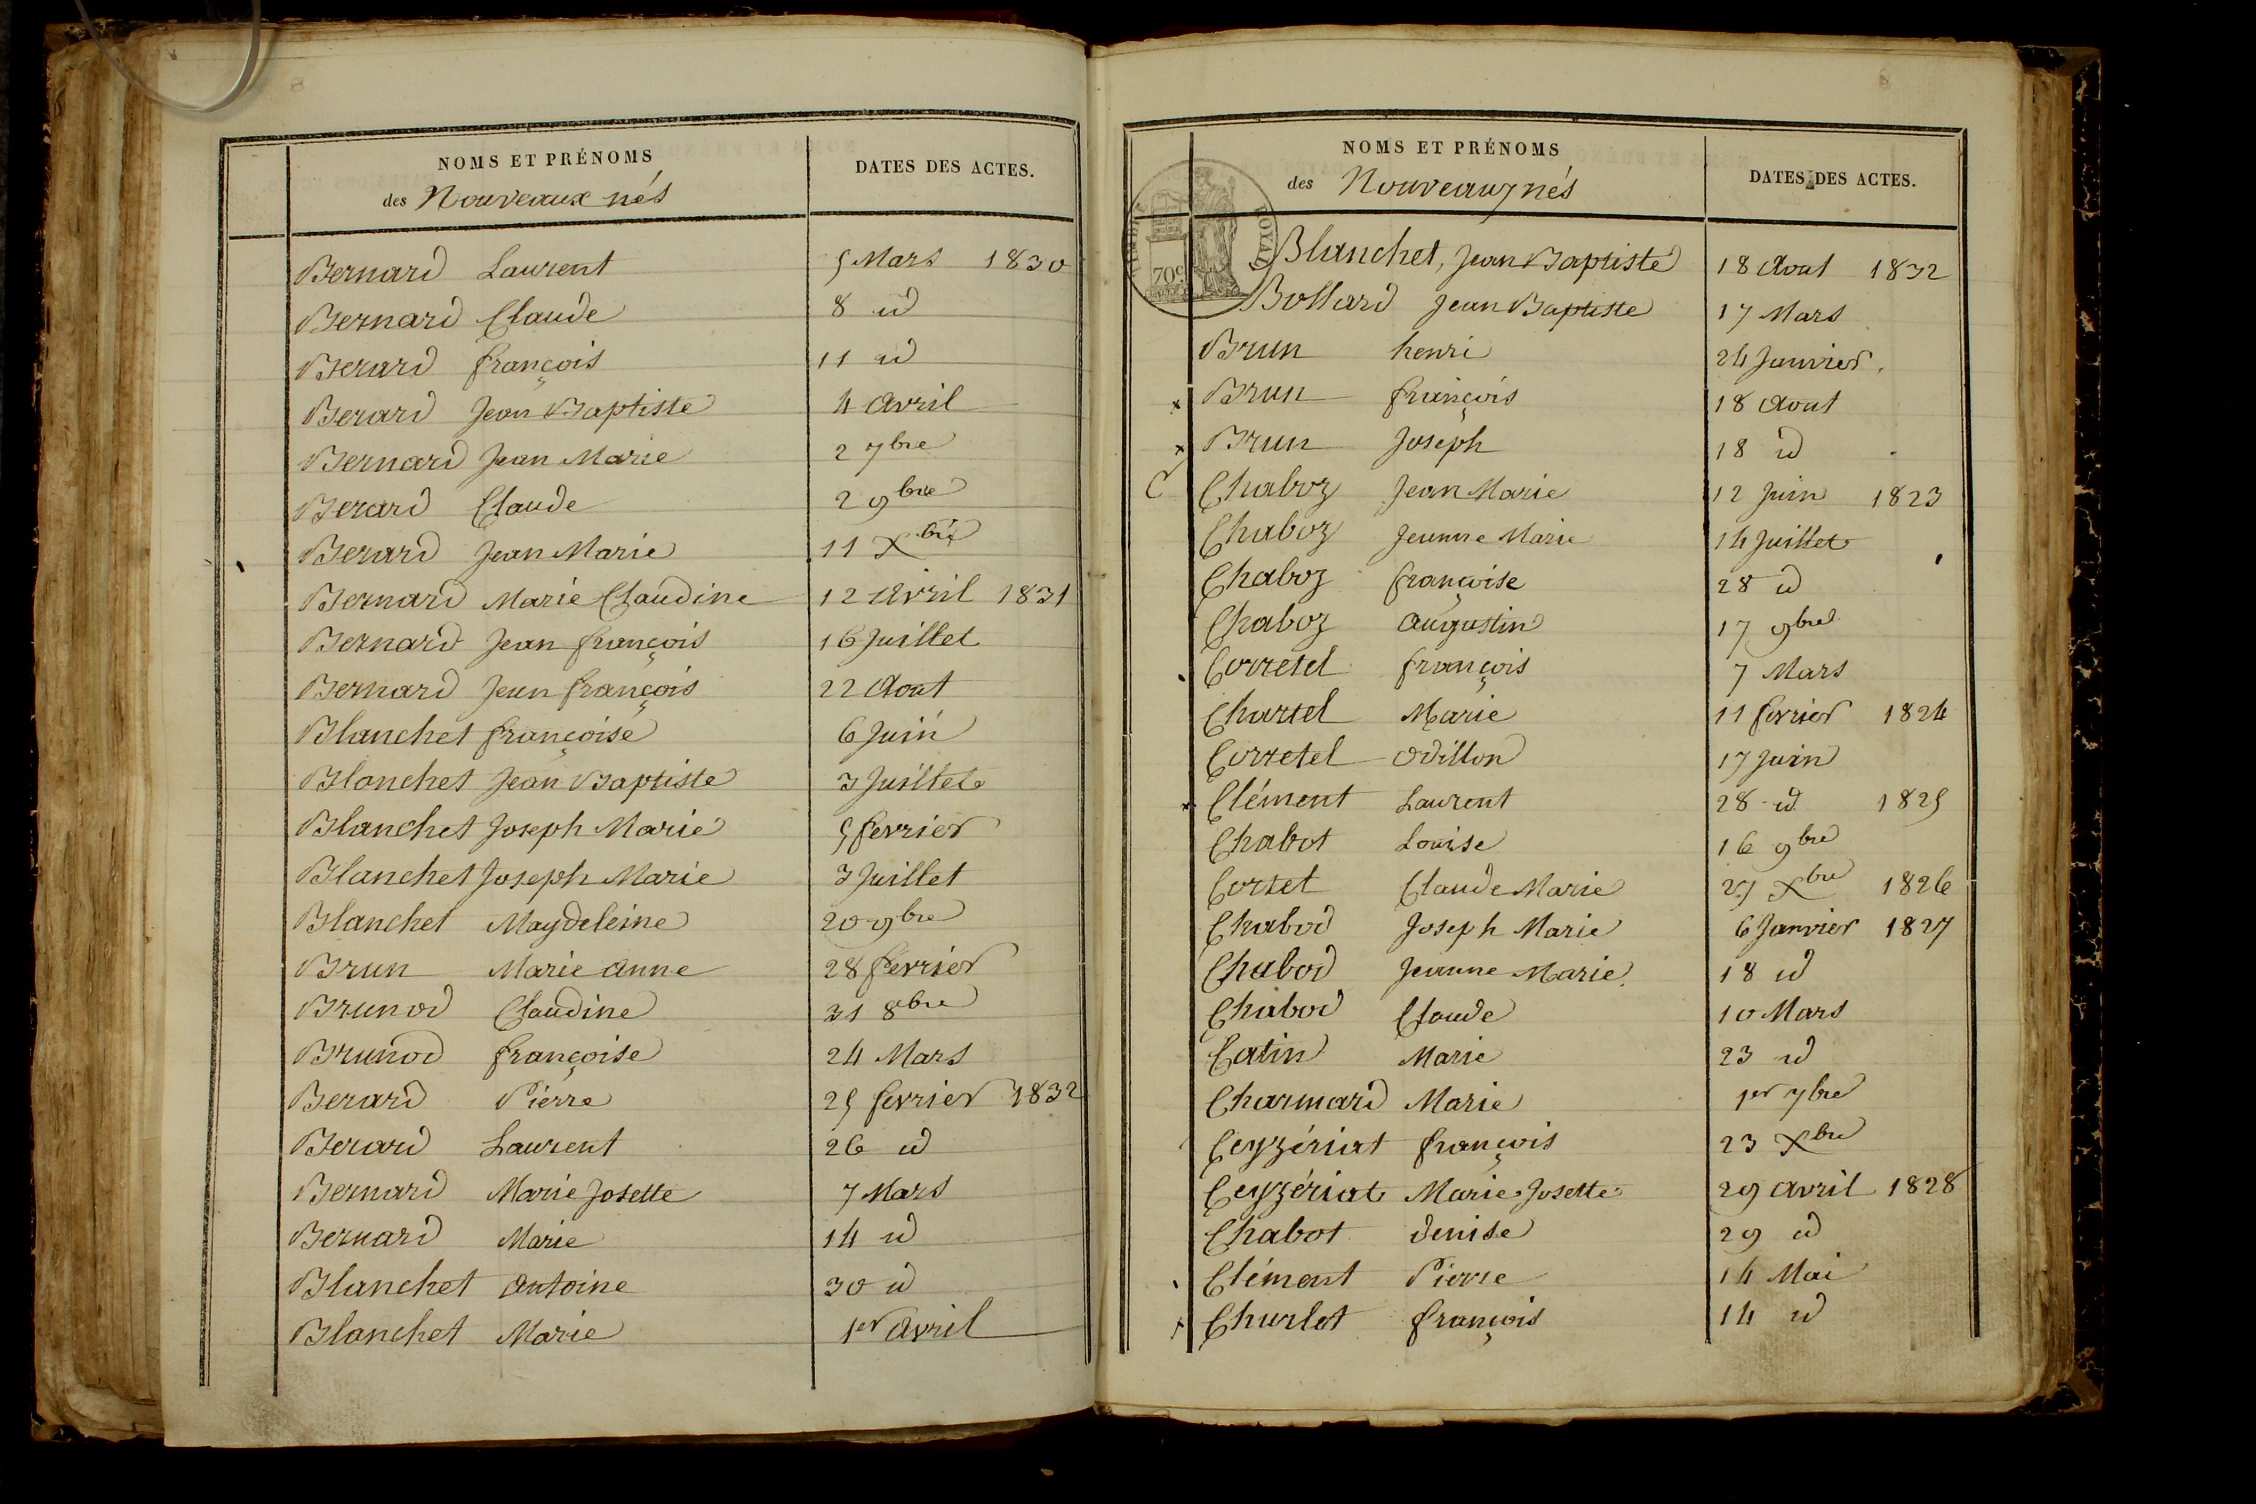 NOMS ET PRÉNOMS
des Nouveaux nés
DATES DES ACTES.
Bernard Laurent 5 Mars 1830
Bernard Claude 8 id
Berard françois 11 id
Berard Jean Baptiste 4 avril
Bernard Jean Marie 2 7bre
Berard Claude 2 9bre
Berard Jean Marie 11 Xbre
Bernard Marie Claudine 12 avril 1831
Bernard Jean françois 16 Juillet
Bernard Jean françois 22 Aout
Blanchet françoise 6 Juin
Blanchet Jean Baptiste 3 Juillet
Blanchet Joseph Marie 5 fevrier
Blanchet Joseph Marie 3 Juillet
Blanchet Magdeleine 20 9bre
Brun Marie anne 28 fevrier
Brunod Claudine 31 8bre
Brunod françoise 24 Mars
Berard Pierre 25 fevrier 1832
Berard Laurent 26 id
Bernard Marie Josette 7 Mars
Bernard Marie 14 id
Blanchet antoine 30 id
Blanchet Marie 1er avril
NOMS ET PRÉNOMS
des Nouveaux nés
DATES DES ACTES.
ROYAL
70c
Blanchet, Jean Baptiste 18 Aout 1832
Bollard Jean Baptiste 17 Mars
Brun henri 24 Janvier
x Brun françois 18 Aout
x Brun Joseph 18 id
C Chaboz Jean Marie 12 Juin 1823
Chaboz Jeanne Marie 14 Juillet
Chaboz françoise 28 id
Chaboz augustin 17 9bre
Corretel françois 7 Mars
Chartel Marie 11 fevrier 1824
Corretel odillon 17 Juin
x Clément Laurent 28 id 1825
Chabot Louise 16 9bre
Cortet Claude Marie 27 Xbre 1826
Chabod Joseph Marie 6 Janvier 1827
Chabod Jeanne Marie 18 id
Chabod Claude 10 Mars
Catin Marie 23 id
Charmard Marie 1er 7bre
Ceyzériat françois 23 Xbre
Ceyzériat Marie Josette 29 avril 1828
Chabot denise 29 id
Clément Pierre 14 Mai
Churlot françois 14 id